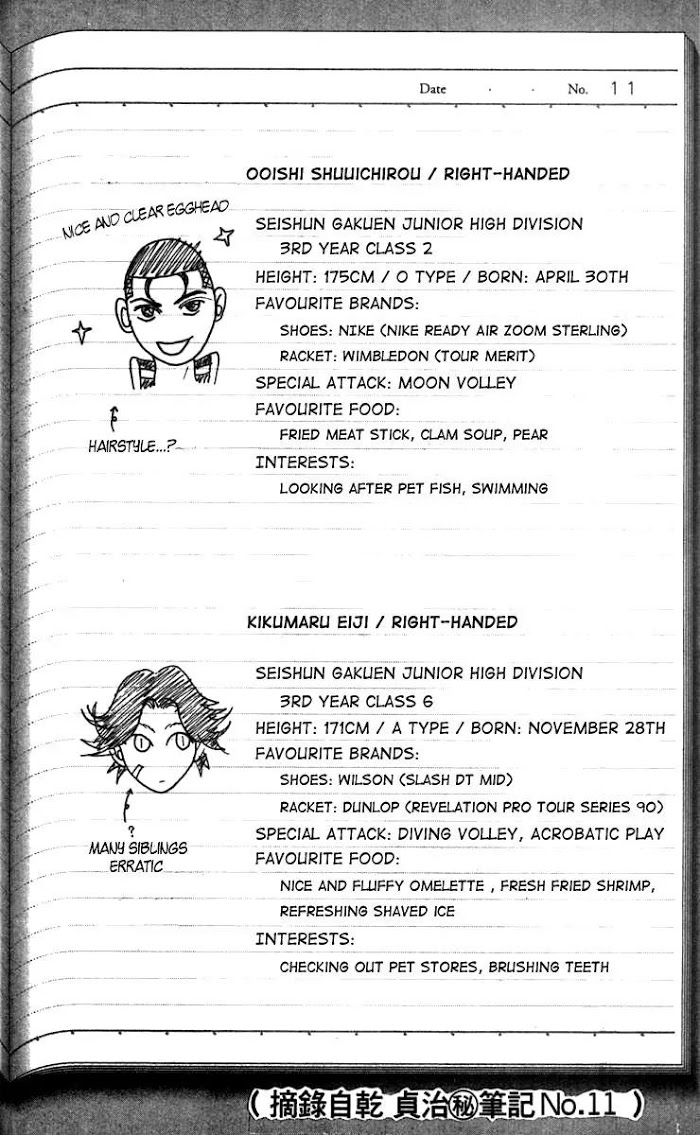 Date . . No. 11
OOISHI SHUUICHIROU / RIGHT-HANDED
NICE AND CLEAR EGGHEAD
SEISHUN GAKUEN JUNIOR HIGH DIVISION
3RD YEAR CLASS 2
HEIGHT: 175CM / O TYPE / BORN: APRIL 30TH
FAVOURITE BRANDS:
SHOES: NIKE (NIKE READY AIR ZOOM STERLING)
RACKET: WIMBLEDON (TOUR MERIT)
SPECIAL ATTACK: MOON VOLLEY
FAVOURITE FOOD:
FRIED MEAT STICK, CLAM SOUP, PEAR
HAIRSTYLE...?
INTERESTS:
LOOKING AFTER PET FISH, SWIMMING
KIKUMARU EIJI / RIGHT-HANDED
SEISHUN GAKUEN JUNIOR HIGH DIVISION
3RD YEAR CLASS 6
HEIGHT: 171CM / A TYPE / BORN: NOVEMBER 28TH
FAVOURITE BRANDS:
SHOES: WILSON (SLASH DT MID)
RACKET: DUNLOP (REVELATION PRO TOUR SERIES 90)
SPECIAL ATTACK: DIVING VOLLEY, ACROBATIC PLAY
?
MANY SIBLINGS
ERRATIC
FAVOURITE FOOD:
NICE AND FLUFFY OMELETTE , FRESH FRIED SHRIMP,
REFRESHING SHAVED ICE
INTERESTS:
CHECKING OUT PET STORES, BRUSHING TEETH
(摘錄自乾 貞治㊙筆記No.11)